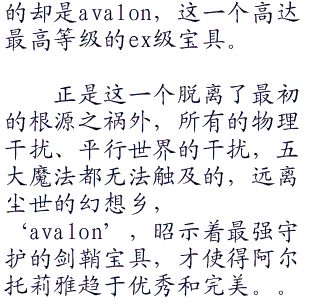 的却是avalon，这一个高达
最高等级的ex级宝具。
正是这一个脱离了最初
的根源之祸外，所有的物理
干扰、平行世界的干扰，五
大魔法都无法触及的，远离
尘世的幻想乡，
‘avalon’，昭示着最强守
护的剑鞘宝具，才使得阿尔
托莉雅趋于优秀和完美。。